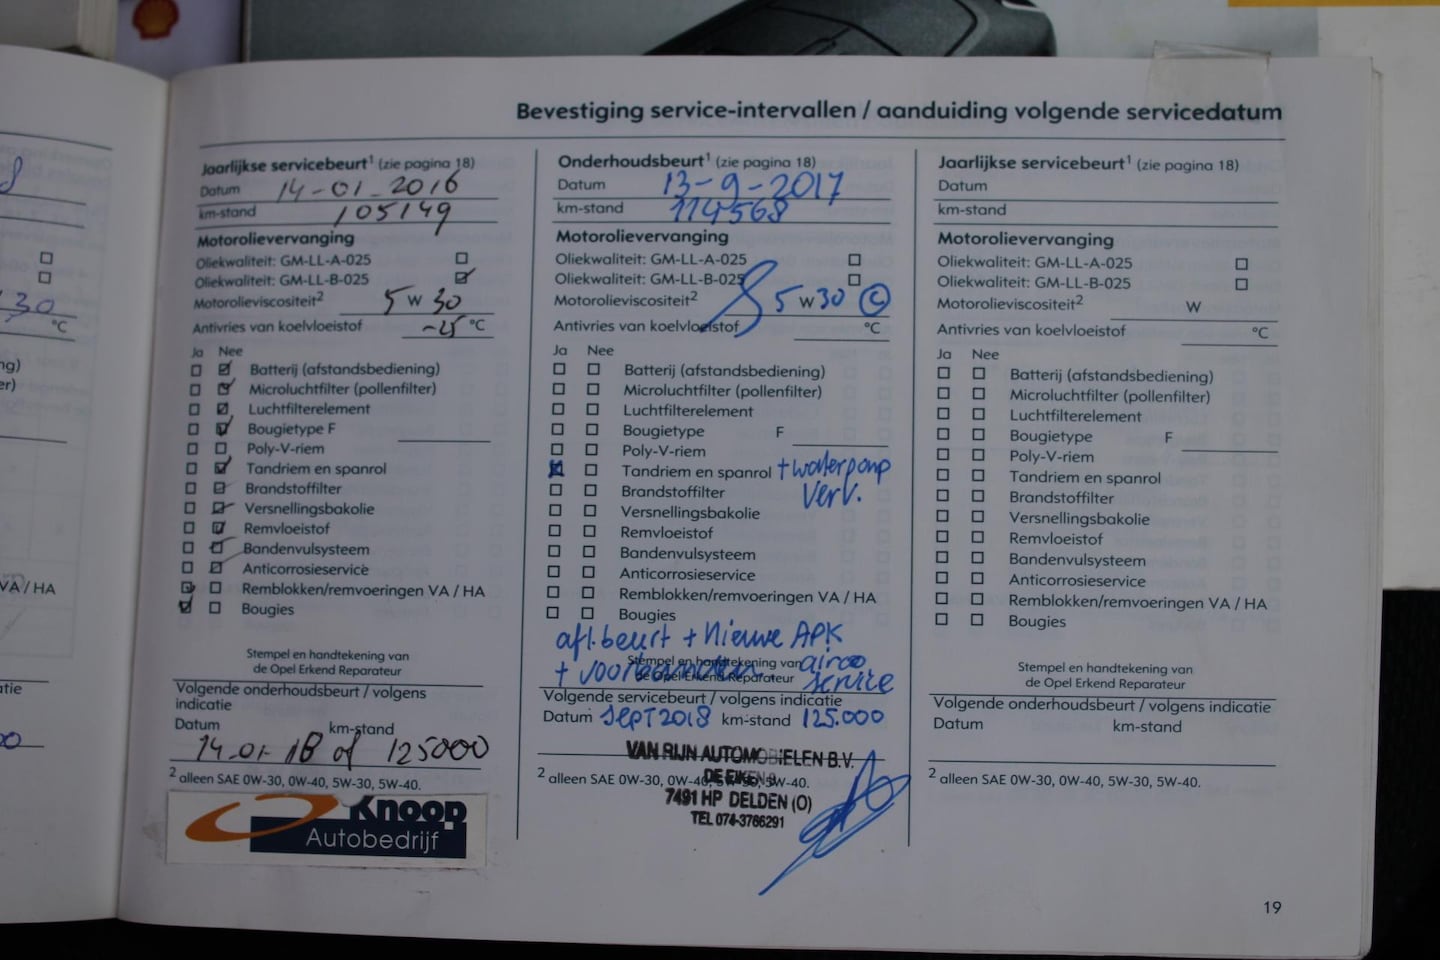 Bevestiging service-intervallen / aanduiding volgende servicedatum
Jaarlijkse servicebeurt¹ (zie pagina 18)
Datum 14-01-2016
km-stand 105149
Motorolievervanging
Oliekwaliteit: GM-LL-A-025
Oliekwaliteit: GM-LL-B-025
Motorolieviscositeit² 5 W 30
Antivries van koelvloeistof -25 °C
Ja Nee
Batterij (afstandsbediening)
Microluchtfilter (pollenfilter)
Luchtfilterelement
Bougietype F
Poly-V-riem
Tandriem en spanrol
Brandstoffilter
Versnellingsbakolie
Remvloeistof
Bandenvulsysteem
Anticorrosieservice
Remblokken/remvoeringen VA / HA
Bougies
Stempel en handtekening van
de Opel Erkend Reparateur
Volgende onderhoudsbeurt / volgens
indicatie
Datum km-stand
14-01-18 of 125000
² alleen SAE 0W-30, 0W-40, 5W-30, 5W-40.
Knoop
Autobedrijf
Onderhoudsbeurt¹ (zie pagina 18)
Datum 13-9-2017
km-stand 114568
Motorolievervanging
Oliekwaliteit: GM-LL-A-025
Oliekwaliteit: GM-LL-B-025
Motorolieviscositeit² 5 W 30 C
Antivries van koelvloeistof °C
Ja Nee
Batterij (afstandsbediening)
Microluchtfilter (pollenfilter)
Luchtfilterelement
Bougietype F
Poly-V-riem
Tandriem en spanrol + waterpomp
verv.
Brandstoffilter
Versnellingsbakolie
Remvloeistof
Bandenvulsysteem
Anticorrosieservice
Remblokken/remvoeringen VA / HA
Bougies
afl.beurt + nieuwe APK
+ airco
service
Stempel en handtekening van
de Opel Erkend Reparateur
Volgende servicebeurt / volgens indicatie
Datum sept 2018 km-stand 125.000
VAN RIJN AUTOMOBIELEN B.V.
² alleen SAE 0W-30, 0W-40, 5W-30, 5W-40.
DE EIKEN 9
7491 HP DELDEN (O)
TEL 074-3766291
Jaarlijkse servicebeurt¹ (zie pagina 18)
Datum
km-stand
Motorolievervanging
Oliekwaliteit: GM-LL-A-025
Oliekwaliteit: GM-LL-B-025
Motorolieviscositeit² W
Antivries van koelvloeistof °C
Ja Nee
Batterij (afstandsbediening)
Microluchtfilter (pollenfilter)
Luchtfilterelement
Bougietype F
Poly-V-riem
Tandriem en spanrol
Brandstoffilter
Versnellingsbakolie
Remvloeistof
Bandenvulsysteem
Anticorrosieservice
Remblokken/remvoeringen VA / HA
Bougies
Stempel en handtekening van
de Opel Erkend Reparateur
Volgende onderhoudsbeurt / volgens indicatie
Datum km-stand
² alleen SAE 0W-30, 0W-40, 5W-30, 5W-40.
19